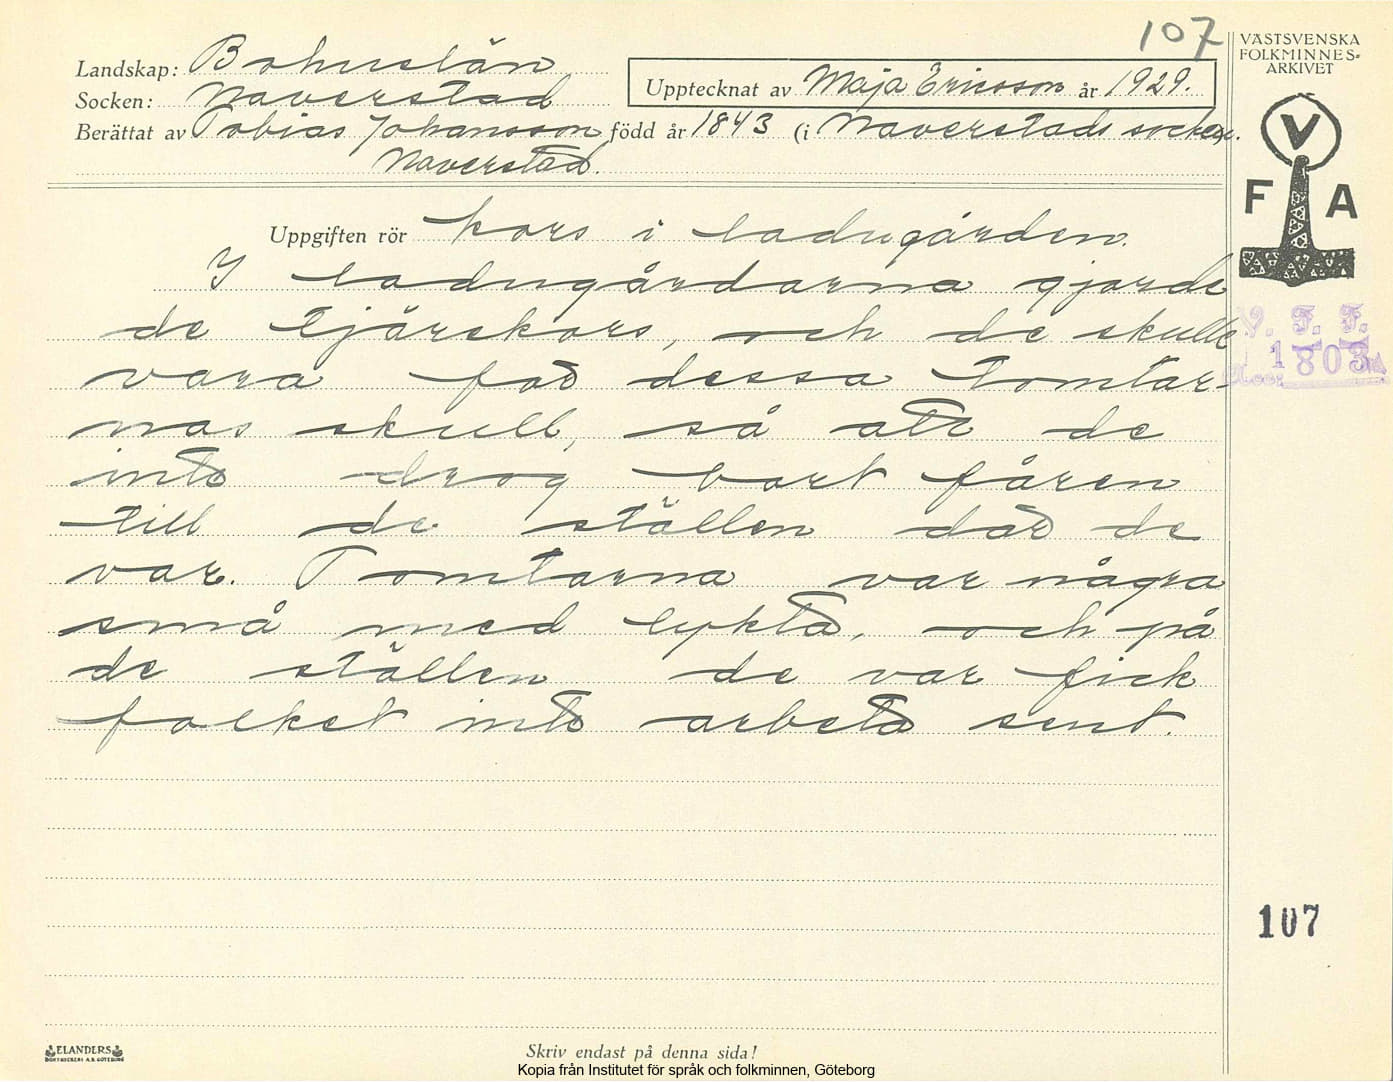 107
VÄSTSVENSKA
FOLKMINNES-
ARKIVET
Landskap: Bohuslän
Socken: Naverstad
Upptecknat av Maja Ericsson år 1929.
Berättat av Tobias Johansson född år 1843 (i Naverstads socken.
Naverstad.
V
F A
Uppgiften rör kors i ladugården.
I ladugårdarna gjorde
de tjärekors, och de skulle
vara för dessa tomtar-
nas skull, så att de
inte drog bort fåren
till de ställen där de
var. Tomtarna var några
små med lykta, och på
de ställen de var fick
folket inte arbeta sent.
V. F. F.
1803
107
ELANDERS
BOKTRYCKERI A.B. GÖTEBORG
Skriv endast på denna sida!
Kopia från Institutet för språk och folkminnen, Göteborg